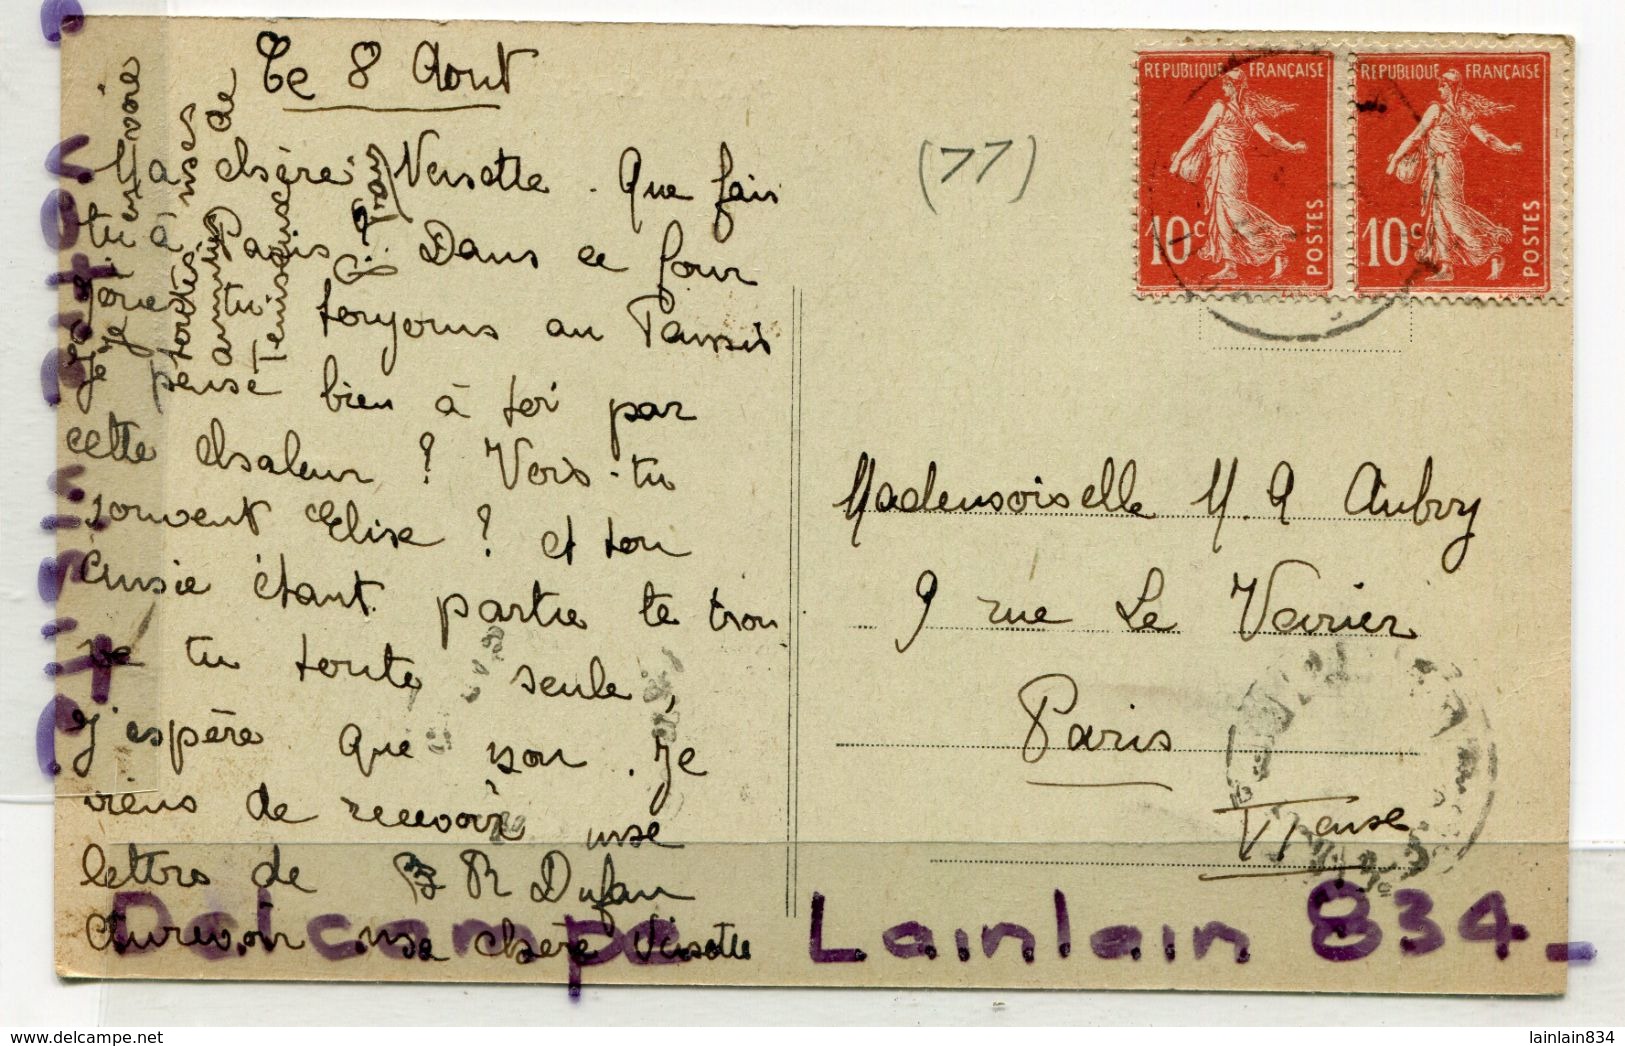 Le 8 Aout
Ma chère Neusette. Que fais
tu à Paris ? Dans ce four
joue tu toujours au Tennis
Je pense bien à toi par
cette chaleur ? Vois-tu
souvent Elise ? et ton
Ansie étant partie te trou
ve tu toute seule,
J'espère que non. Je
viens de recevoir une
lettre de R Dufau
Aurevoir ma chère
Je envoie
toutes mes
amitiés de
REPUBLIQUE FRANÇAISE
10c POSTES
REPUBLIQUE FRANÇAISE
10c POSTES
(77)
Mademoiselle M. A Aubry
9 rue Le Verrier
Paris
VI
Votre visite
Delcampe Lainlain 834
www.delcampe.net
lainlain834